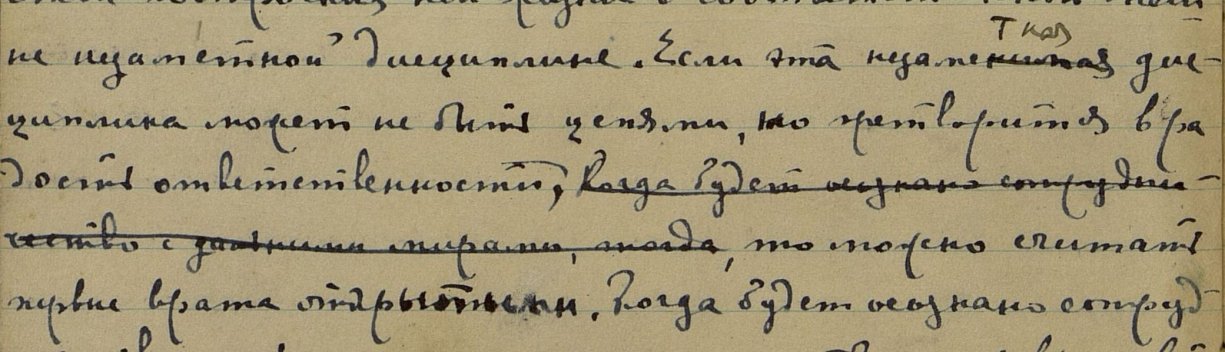 не незаметной дисциплине. Если эта незаметная дис-
циплина может не быть цепями, но претворится в ра
дость ответственности, когда будет осознано сотрудни-
чество с дальними мирами, тогда, то можно считать
первые врата открытыми. Когда будет осознано сотруд-